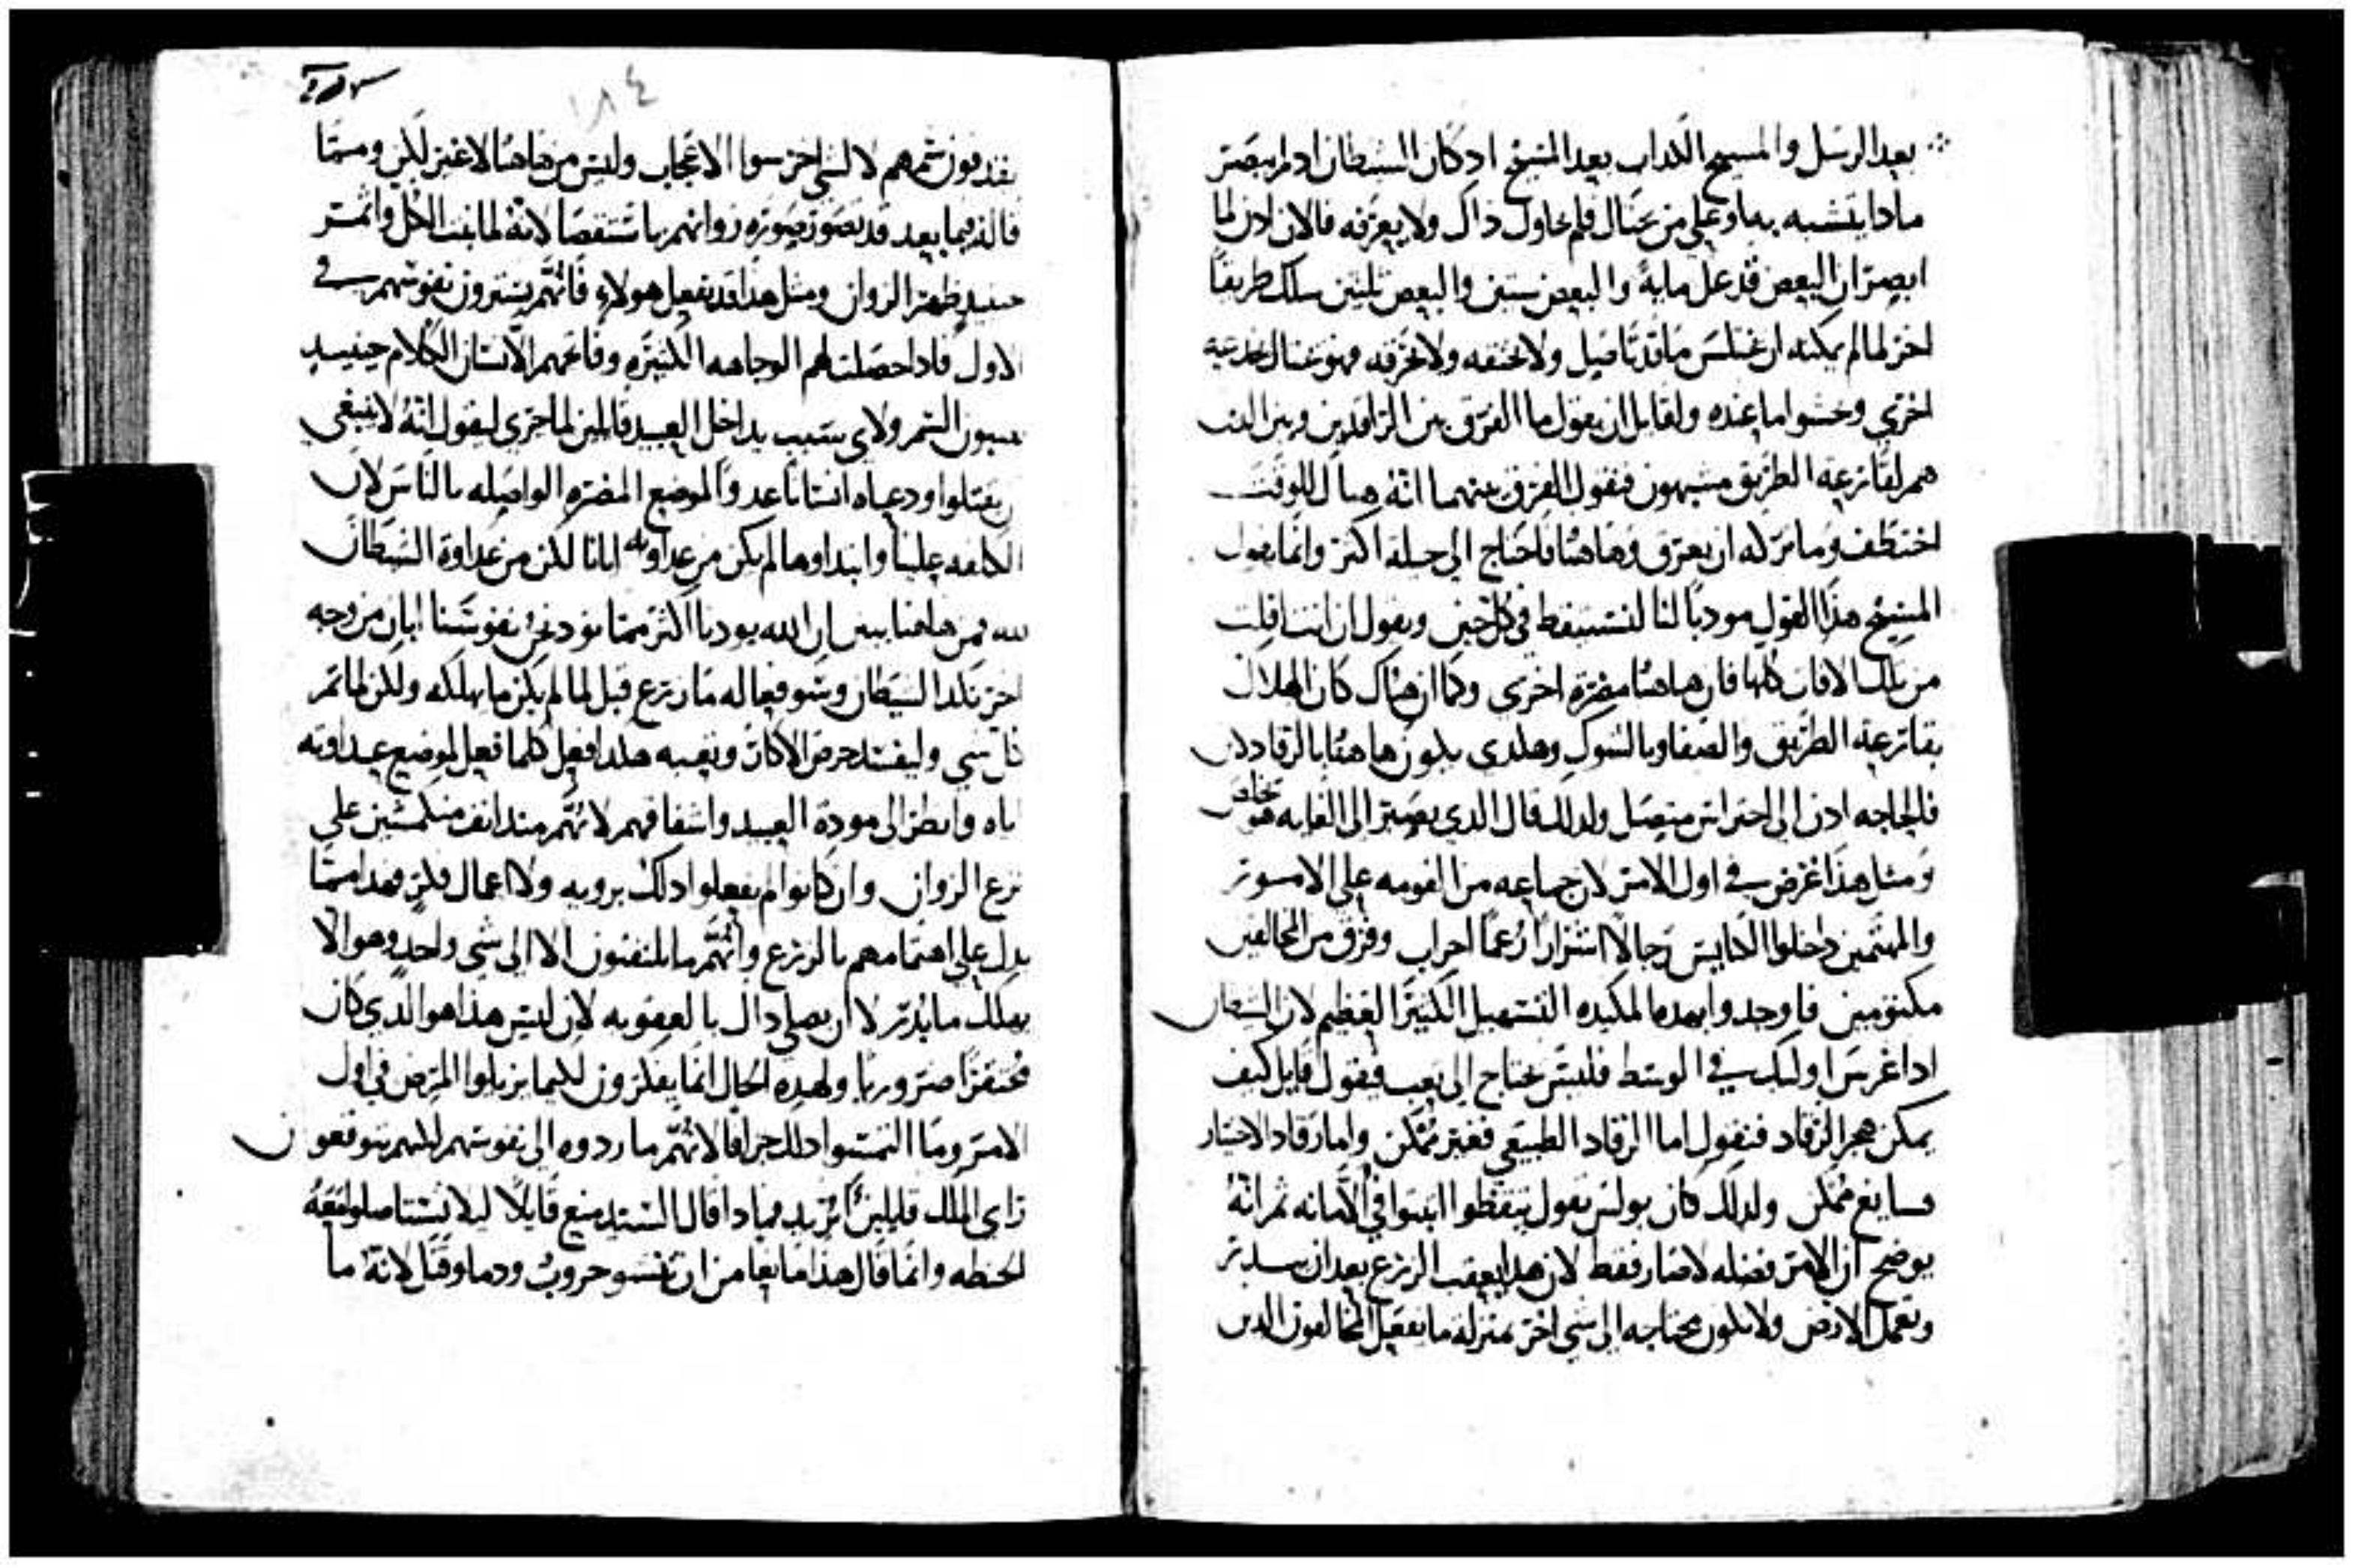 بعد الرسل والمسيح الكداب بعد المسيح اد كان الشيطان اد لم يبصر
مادا يتشبه به او علي من يحتال فلم يحاول ذاك ولا يعرفه فالان ادن لما
ابصر ان البعض قد عمل مايه والبعض ستين والبعض تلتين سلك طريقا
اخر لما لم يمكنه ان يختلس ما قد تاصل ولا يخنقه ولا يحرقه فهو يحتال بخدعه
اخري وحشوا ما عنده ولقايل ان يقول ما الفرق بين الراقدين وبين الدين
هم لقارعة الطريق مشبهون فنقول الفرق بينهما انه هناك للوقت
اختطف وما تركه ان يعرق وهاهنا فاحتاج الي حيله اكتر وانما يقول
المسيح هذا القول مودبا لنا لنستيقظ في كل حين ويقول ان انت افلت
من تلك الافات كلها فان هاهنا مضره اخري وكما ان هناك كان الهلاك
بقارعة الطريق والصفا وبالشوك وهكدي يكون هاهنا بالرقاد لان
فالحاجه ادن الي احتراس متصل ولدلك قال الدي يصبر الي الغايه هو يخلص
ومثل هذا عرض في اول الامر لان جماعه من القومه علي الامور
والمهتمين داخلوا الكنايس رجالا اشرارا زعما احزاب وفرق من المخالفين
مكتومين فاوجدوا بهده المكيده التسهيل الكبير العظيم لان الشيطان
ادا غرس اوليك في الوسط فليس يحتاج الي تعب فيقول قايل كيف
يمكن هجر الرقاد فنقول اما الرقاد الطبيعي فغير ممكن واما رقاد الاختيار
فسايغ ممكن ولدلك كان بولس يقول تيقظوا اثبتوا في الامانه ثم انه
يوضح ان الامر فضله لا ضار فقط لان هدا يعقب الزرع بعد ان
وتعمل الارض ولا تكون محتاجه الي شي اخر بمنزلة ما يفعل المخالفون الدين
١٨٤
يقدفون سمهم لا لشي اخر سوا الاعجاب وليس من هاهنا لا غير لكن ومما
قاله فيما بعد قد تصور صورة زوانهم باستقصا لانه لما نبت الاكل واثمر
حينيد ظهر الزوان ومثل هدا قد يفعل هولاء فانهم يسترون نفوسهم في
الاول فادا حصلت لهم الوجاهه الكبيره وفاتحهم الانسان الكلام حينيد
السم ولاي سبب يداخل العبيد قايلين لما جري ليقول انه لا ينبغي
ان يقتلوا ودعياه انسانا عدوا لموضع المضره الواصله بالناس لان
علينا وابتداوها لم يكن من عداوته ايانا لكن من عداوة الشيطان
لله فمن هاهنا يبين ان الله يودنا اكثر مما نود نحن نفوسنا ابان من وجه
اخر نكد الشيطان وسو فعاله ما زرع قبل لما لم يكن ما يهلكه ولكن لما تم
كل شي وليفسد حرص الاكار وتعبه هكدا فعل كلما فعل لموضع عداوته
اياه وانظر الي مودة العبيد واشفاقهم لانهم مند انف منكمشين علي
نزع الزوان وان كانوا لم يفعلوا دلك برويه ولا اعمال فكر فهدا مما
يدل علي اهتمامهم بالزرع وانهم ما يلتفتون الا الي شي واحد وهو الا
يهلك ما بدر لا ان يصلي داك بالعقوبه لان ليس هذا هو الذي كان
محتقرا ضروريا ولهده الحال انما يفكرون لكيما يزيلوا المرض في اول
الامر وما التمسوا دلك جزافا لانهم ما ردوه الي نفوسهم لكنهم يتوقعون
راي الملك قايلين اتريد فمادا قال السيد منع قايلا ليلا تستاصلوا معه
الحنطه وانما قال هذا مانعا من ان تنشو حروب ودما وقتل لانه ما